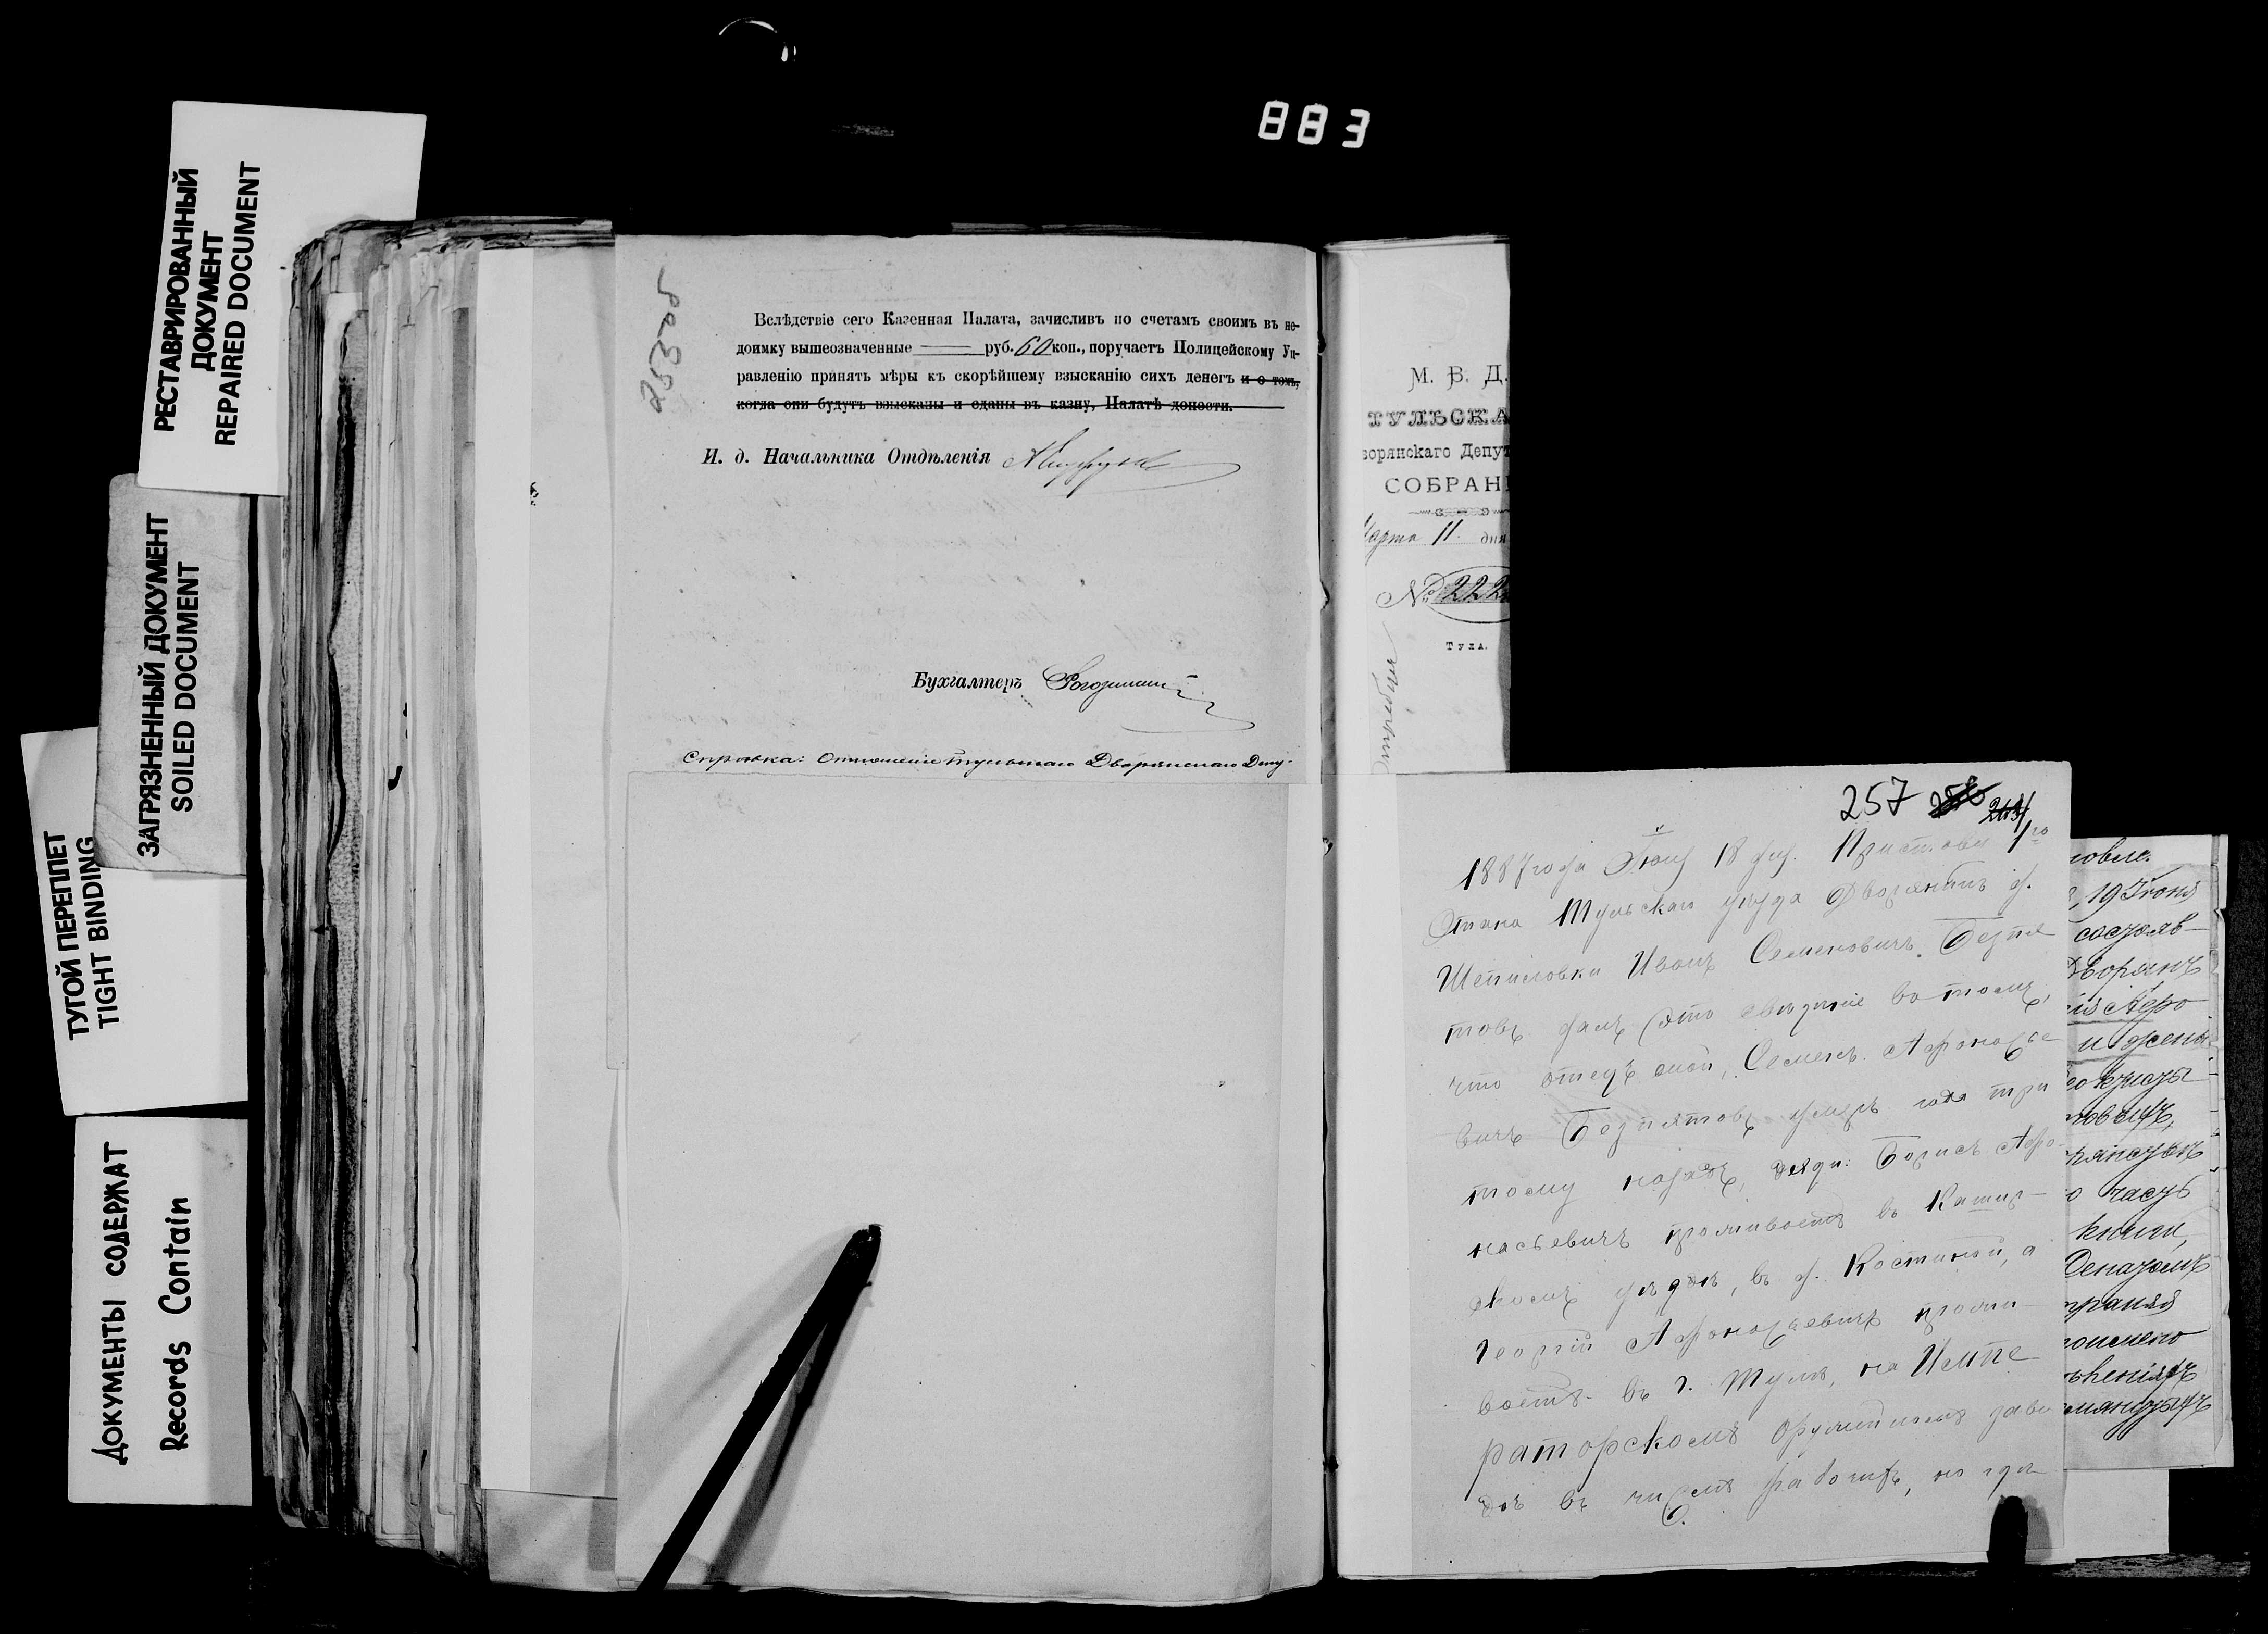 883
РЕСТАВРИРОВАННЫЙ
ДОКУМЕНТ
REPAIRED DOCUMENT
ЗАГРЯЗНЕННЫЙ ДОКУМЕНТ
SOILED DOCUMENT
ТУГОЙ ПЕРЕПЛЕТ
TIGHT BINDING
ДОКУМЕНТЫ СОДЕРЖАТ
Records Contain
Вслѣдствіе сего Казенная Палата, зачисливъ по счетамъ своимъ въ не-
доимку вышеозначенные руб. 60 коп., поручаетъ Полицейскому Уп-
равленію принять мѣры къ скорѣйшему взысканію сихъ денегъ и о томъ,
когда они будутъ взысканы и сданы въ казну, Палатѣ донести.
И. д. Начальника Отдѣленія
Бухгалтеръ
Справка: Отношеніе Тульскаго Дворянскаго Депу-
М. В. Д.
ТУЛЬСКА
ворянскаго Депут
СОБРАН
Марта 11 дня
№ 222
ТУЛА.
257
1887 года Іюня 18 дня. Приставу 1го
Стана Тульскаго уѣзда Дворянинъ д.
Шепиловки Иванъ Семеновичъ Безпя
товъ далъ это свѣдѣніе въ томъ,
что отецъ мой, Семенъ Афонасье
вичъ Безпятовъ умеръ года три
тому назадъ, дядя: Борисъ Афо-
насьевичъ проживаетъ въ Кашир-
скомъ уѣздѣ, въ д. Костиной, а
Георгій Афонасьевичъ прожи-
ваетъ въ г. Тулѣ, на Импе
раторскомъ Оружейномъ заво
дѣ въ числѣ рабочихъ, но гдѣ
, 19 Іюня
состав-
Дворянъ
и жены
часть
книги,